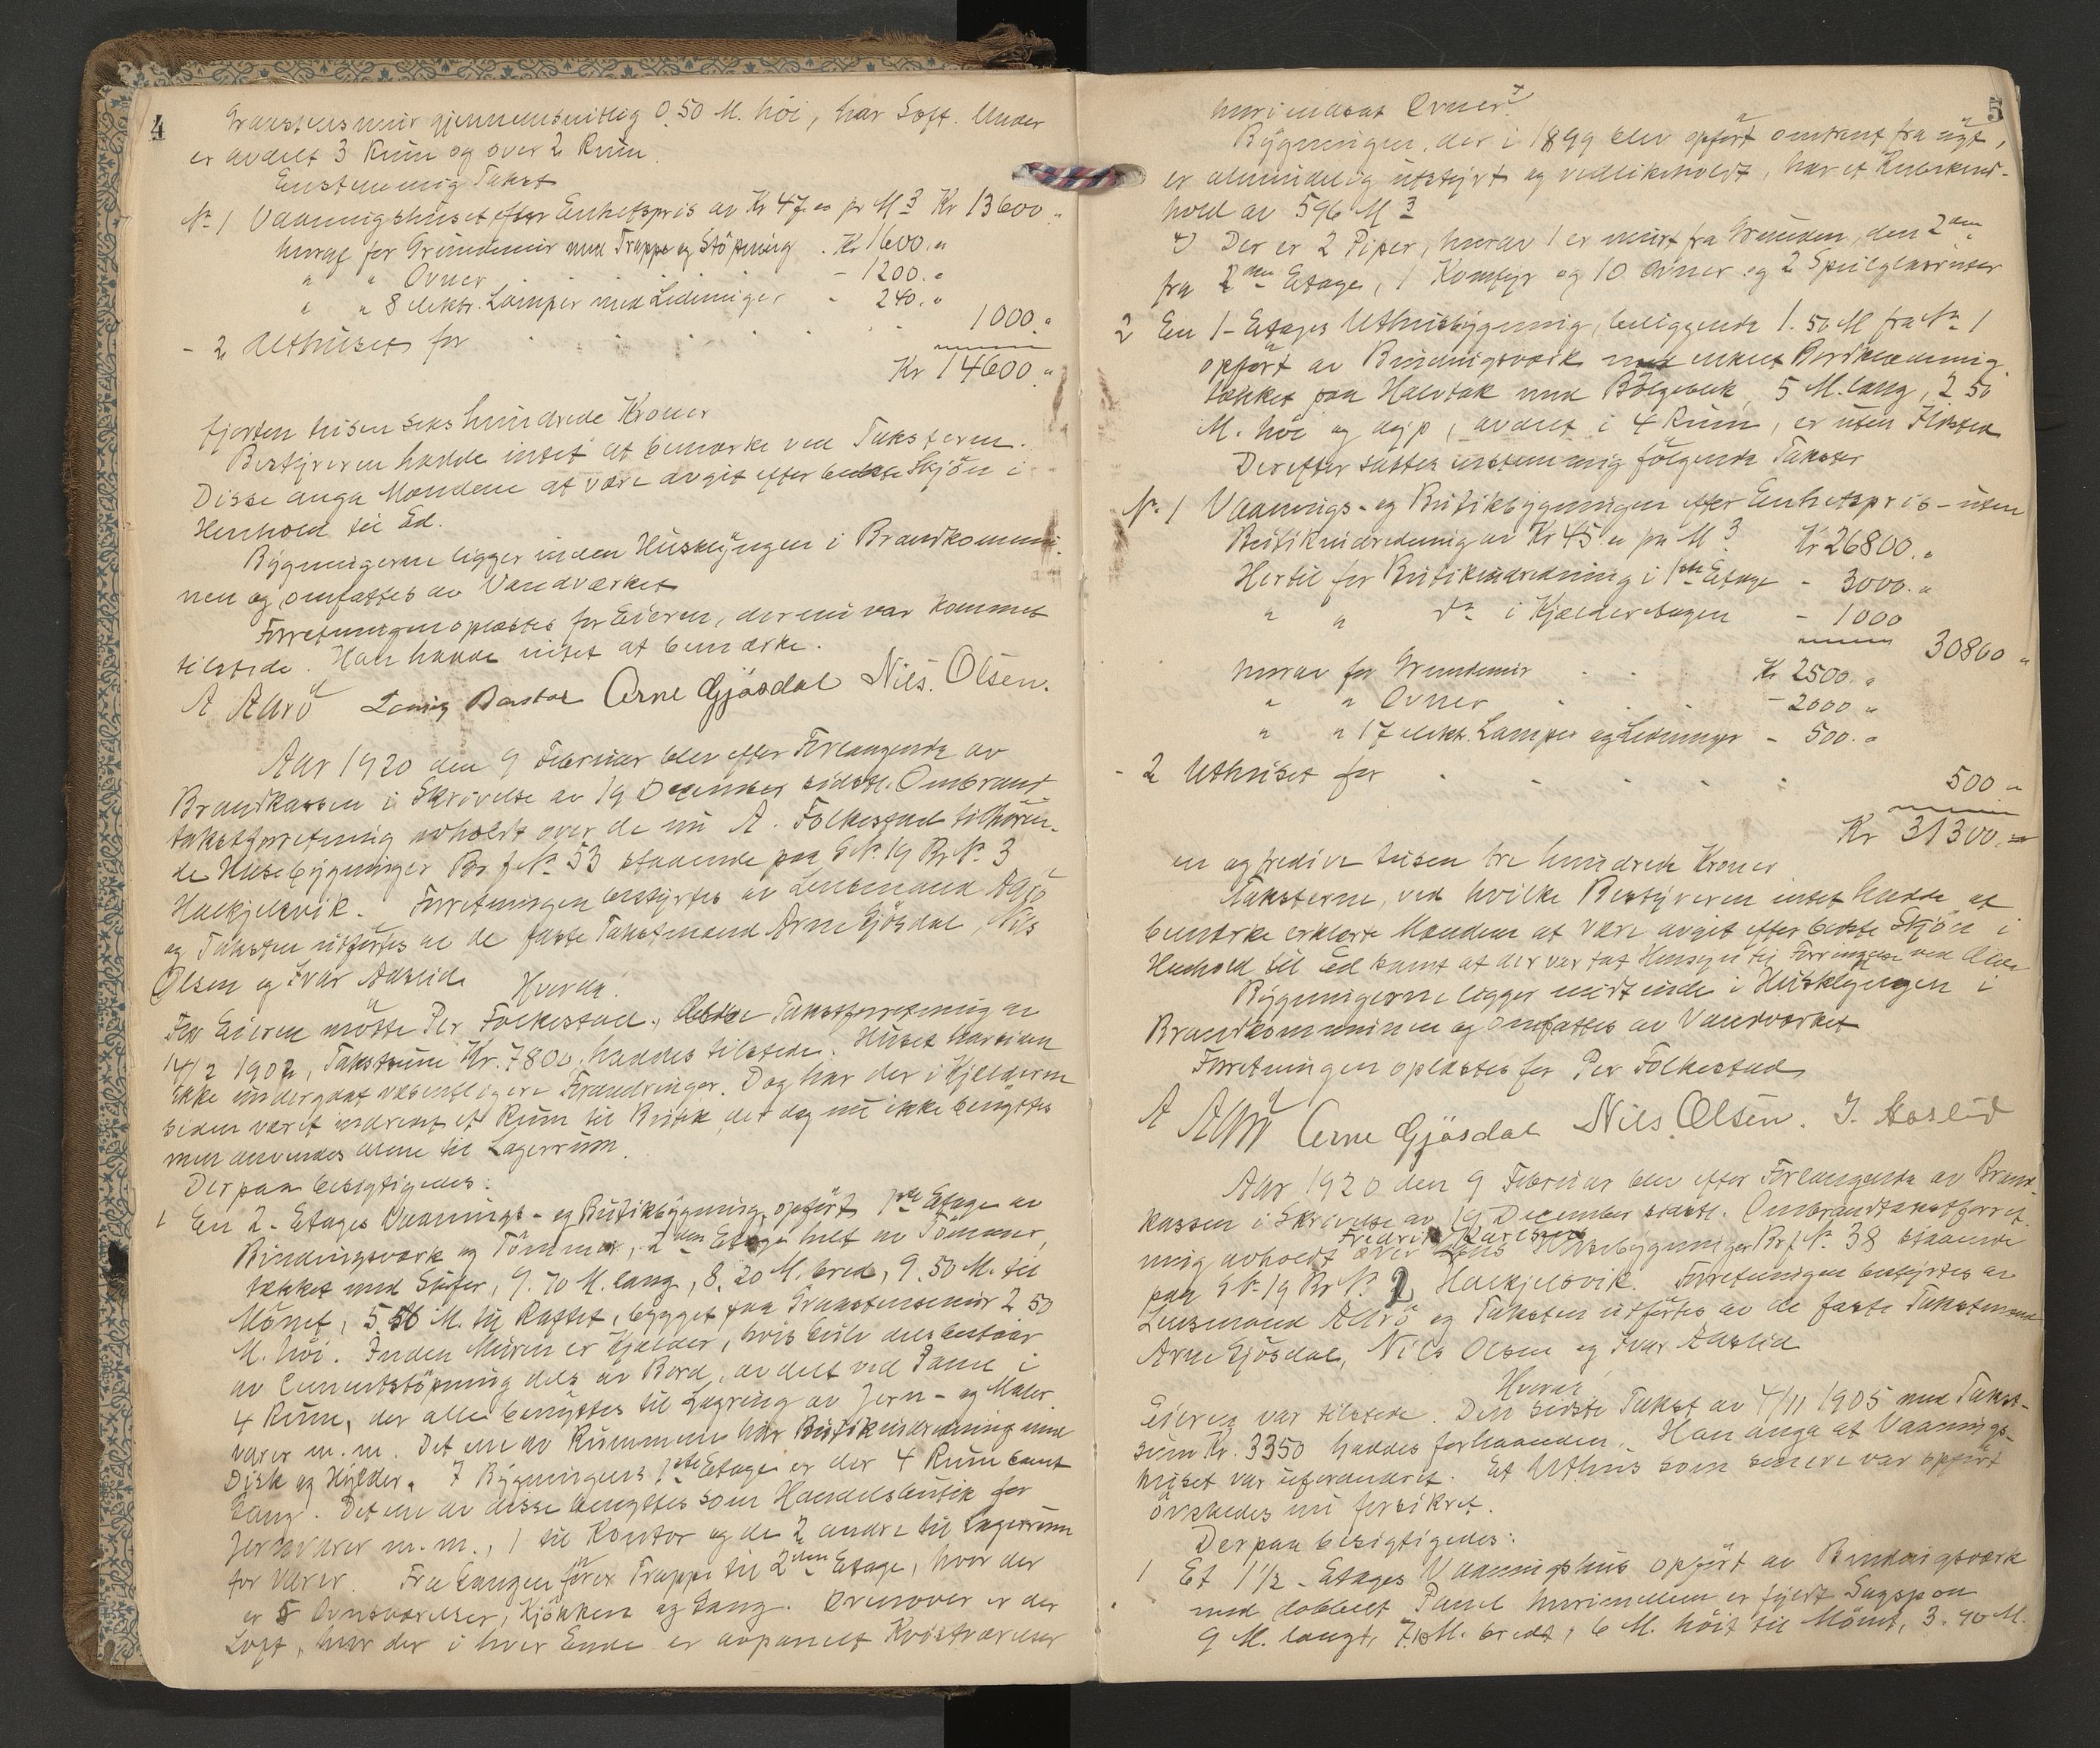 4
Graastensmur gjennemsnitlig 0.50 M. höi, har Loft. Under
er avdelt 3 Rum og over 2 Rum.
Enstemmig Takst
No. 1 Vaaningshuset efter Enhetspris av Kr 47.00 pr M3 Kr 13600."
hvoraf for Grundmur med Trappe og Stöpning . Kr 1600."
" " Ovner . . . . - 1200."
" " 8 elektr. Lamper med Ledninger - 240."
- 2 Uthuset for . . . . . 1000."
Kr 14600."
fjorten tusen seks hundrede Kroner
Bestyreren hadde intet at bemærke ved Taksterne.
Disse anga Mændene at være avgit efter bedste Skjön i
Henhold til Ed.
Bygningerne ligger inden Husklyngen i Brandkommu-
nen og omfattes av Vandværket
Forretningen oplæstes for Eieren, der nu var kommet
tilstede. Han hadde intet at bemærke.
A Aarö Arne Gjösdal Nils. Olsen.
Aar 1920 den 9 Februar blev efter Forlangende av
Brandkassen i Skrivelse av 19 December sidstl. Ombrand-
takstforretning avholdt over de nu A. Folkestad tilhören-
de Husebygninger Br.f. No. 53 staaende paa G No. 19 Br No. 3
Halkjelsvik. Forretningen bestyrtes av Lensmand Aarö
og Taksten utförtes av de faste Takstmænd Arne Gjösdal, Nils
Olsen og Ivar Aaslid. Hvorda:
For Eieren mötte Per Folkestad. Takstforretning av
14/2 1902, Takstsum Kr. 7800, haddes tilstede. Huset har siden
ikke undergaat væsentligere Forandringer. Dog har der i Kjelderen
siden været indredet et Rum til Butik, det dog nu ikke benyttes
men anvendes alene til Lagerrum.
Derpaa besigtigedes:
1 En 2-Etages Vaanings- og Butikbygning, opfört 1ste Etage av
Bindingsverk og Tömmer, 2den Etage helt av Tömmer,
tækket med Skifer, 9.70 M. lang, 8.20 M. bred, 9.50 M. til
Mönet, 5 M. til Raftet, bygget paa Graastensmur 2.50
M. höi. Inden Muren er Kjelder, hvis Gulv dels bestaar
av Cementstöpning dels av Bord, avdelt ved Panel i
4 Rum, der alle benyttes til Lagring av Jern- og Maler-
varer m.m. Det ene av Rummene har Butikindredning med
Disk og Hylder. I Bygningens 1ste Etage er der 4 Rum samt
Gang. Det ene av disse benyttes som Handelsbutik for
Jernvarer m.m., 1 til Kontor og de 2 andre til Lagerrum
for Varer. Fra Gangen förer Trappe til 2den Etage, hvor der
er 5 Ovnsværelser, Kjökken og Gang. Ovenover er der
Loft, hvor der i hver Ende er avpanelt Kvistværelser
5
hvori indsat Ovner.
Bygningen, der i 1899 blev opfört omtrent fra nyt,
er almindelig utstyrt og vedlikeholdt, har et Kubikind-
hold av 596 M3
Der er 2 Piper, hvorav 1 er murt fra Grunden, den 2den
fra 2den Etage, 1 Komfyr og 10 Ovner og 2 Speilglasruter
2 En 1-Etages Uthusbygning, beliggende 1.50 M fra No. 1
opfört av Bindingsværk med enkelt Bordklædning
tækket paa Halvtak med Bölgeblik, 5 M. lang, 2.50
M. höi og dyp, avdelt i 4 Rum, er uten Ildsted
Derefter sattes enstemmig fölgende Takster
No. 1 Vaanings- og Butikbygningen efter Enhetspris - uten
Butikindredning av Kr 45." pr M3 Kr 26800."
Hertil for Butikindredning i 1ste Etage - 3000."
" " do i Kjelderetagen - 1000
30800 "
hvorav for Grundmur . . Kr 2500."
" " Ovner . . - 2000 "
" " 17 elektr. Lamper og Ledninger - 500."
- 2 Uthuset for . . . . . 500 "
Kr 31300."
en og tredive tusen tre hundrede Kroner
Taksterne, ved hvilke Bestyreren intet hadde at
bemærke erklærte Mændene at være avgit efter bedste Skjön i
Henhold til Ed samt at der var tat Hensyn til Forringelse ved Ælde
Bygningerne ligger midt inde i Husklyngen i
Brandkommunen og omfattes av Vandværket
Forretningen oplæstes for Per Folkestad
A Aarö Arne Gjösdal Nils. Olsen. I. Aaslid
Aar 1920 den 9 Februar blev efter Forlangende av Brand-
kassen i Skrivelse av 19 December sidstl. Ombrandtakstforret-
ning avholdt over Fredrik Husebygninger Br.f. No. 38 staaende
paa G No. 19 Br No. 2 Halkjelsvik. Forretningen bestyrtes av
Lensmand Aarö og Taksten utförtes av de faste Takstmænd
Arne Gjösdal, Nils Olsen og Ivar Aaslid
Hvorda:
Eieren var tilstede. Den sidste Takst av 4/11 1905 med Takst-
sum Kr. 3350 haddes forhaanden. Han anga at Vaanings-
huset var uforandret. Et Uthus som senere var opfört
önskedes nu forsikret.
Derpaa besigtigedes:
1 Et 1 1/2-Etages Vaaningshus opfört av Bindingsværk
med dobbelt Panel hvorimellem er fyldt Sagspon
9 M. langt, 7.10 M. bredt, 6 M. höit til Mönet, 3.40 M.